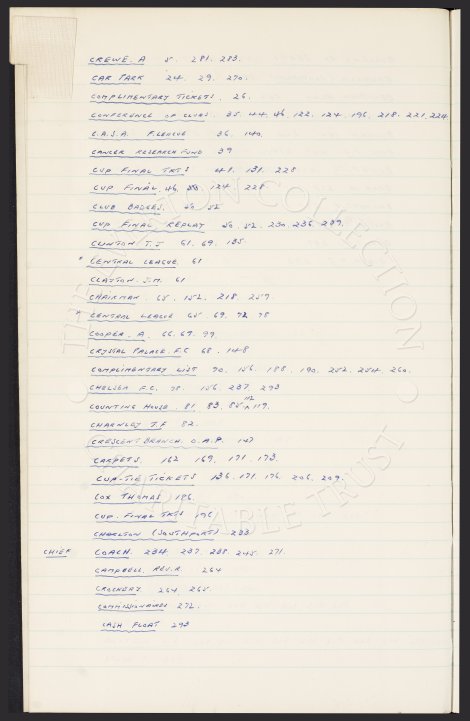 CREWE. A 5. 281. 283.
CAR PARK 24. 29. 270.
COMPLIMENTARY TICKETS. 26.
CONFERENCE OF CLUBS. 35. 44. 46. 122. 124. 196. 218. 221. 224
C.A.S.A. F. LEAGUE 36. 140.
CANCER RESEARCH FUND 39
CUP FINAL TKTS 48. 131. 228
CUP FINAL 46. 50. 124. 228
CLUB BADGES. 50. 52
CUP FINAL REPLAY 50. 52. 230. 236. 239.
CLINTON T.J 61. 69. 135.
* CENTRAL LEAGUE. 61
CLAYTON. J.M. 61
CHAIRMAN. 65. 152. 218. 259.
* CENTRAL LEAGUE 65 69. 72 78
COOPER. A. 66. 69. 99.
CRYSTAL PALACE. F.C 68. 148
COMPLIMENTARY LIST 70. 156. 188. 190. 252. 254. 260.
CHELSEA F.C. 78. 156 237. 293
COUNTING HOUSE. 81. 83. 85. 112 119.
CHARNLEY T.F 82.
CRESCENT BRANCH. O.A.P. 147
CARPETS. 162 169. 171. 173.
CUP-TIE TICKETS 136. 171. 176. 206. 209.
COX THOMAS 186.
CUP. FINAL TKTS 196
CHORLTON (SOUTHPORT) 233
CHIEF COACH. 234. 237. 238. 245. 271.
CAMPBELL REV. R. 264
CROCKERY 264. 265.
COMMISSIONAIRES 272.
CASH FLOAT 293
THE COLLECTION
CHARITABLE TRUST